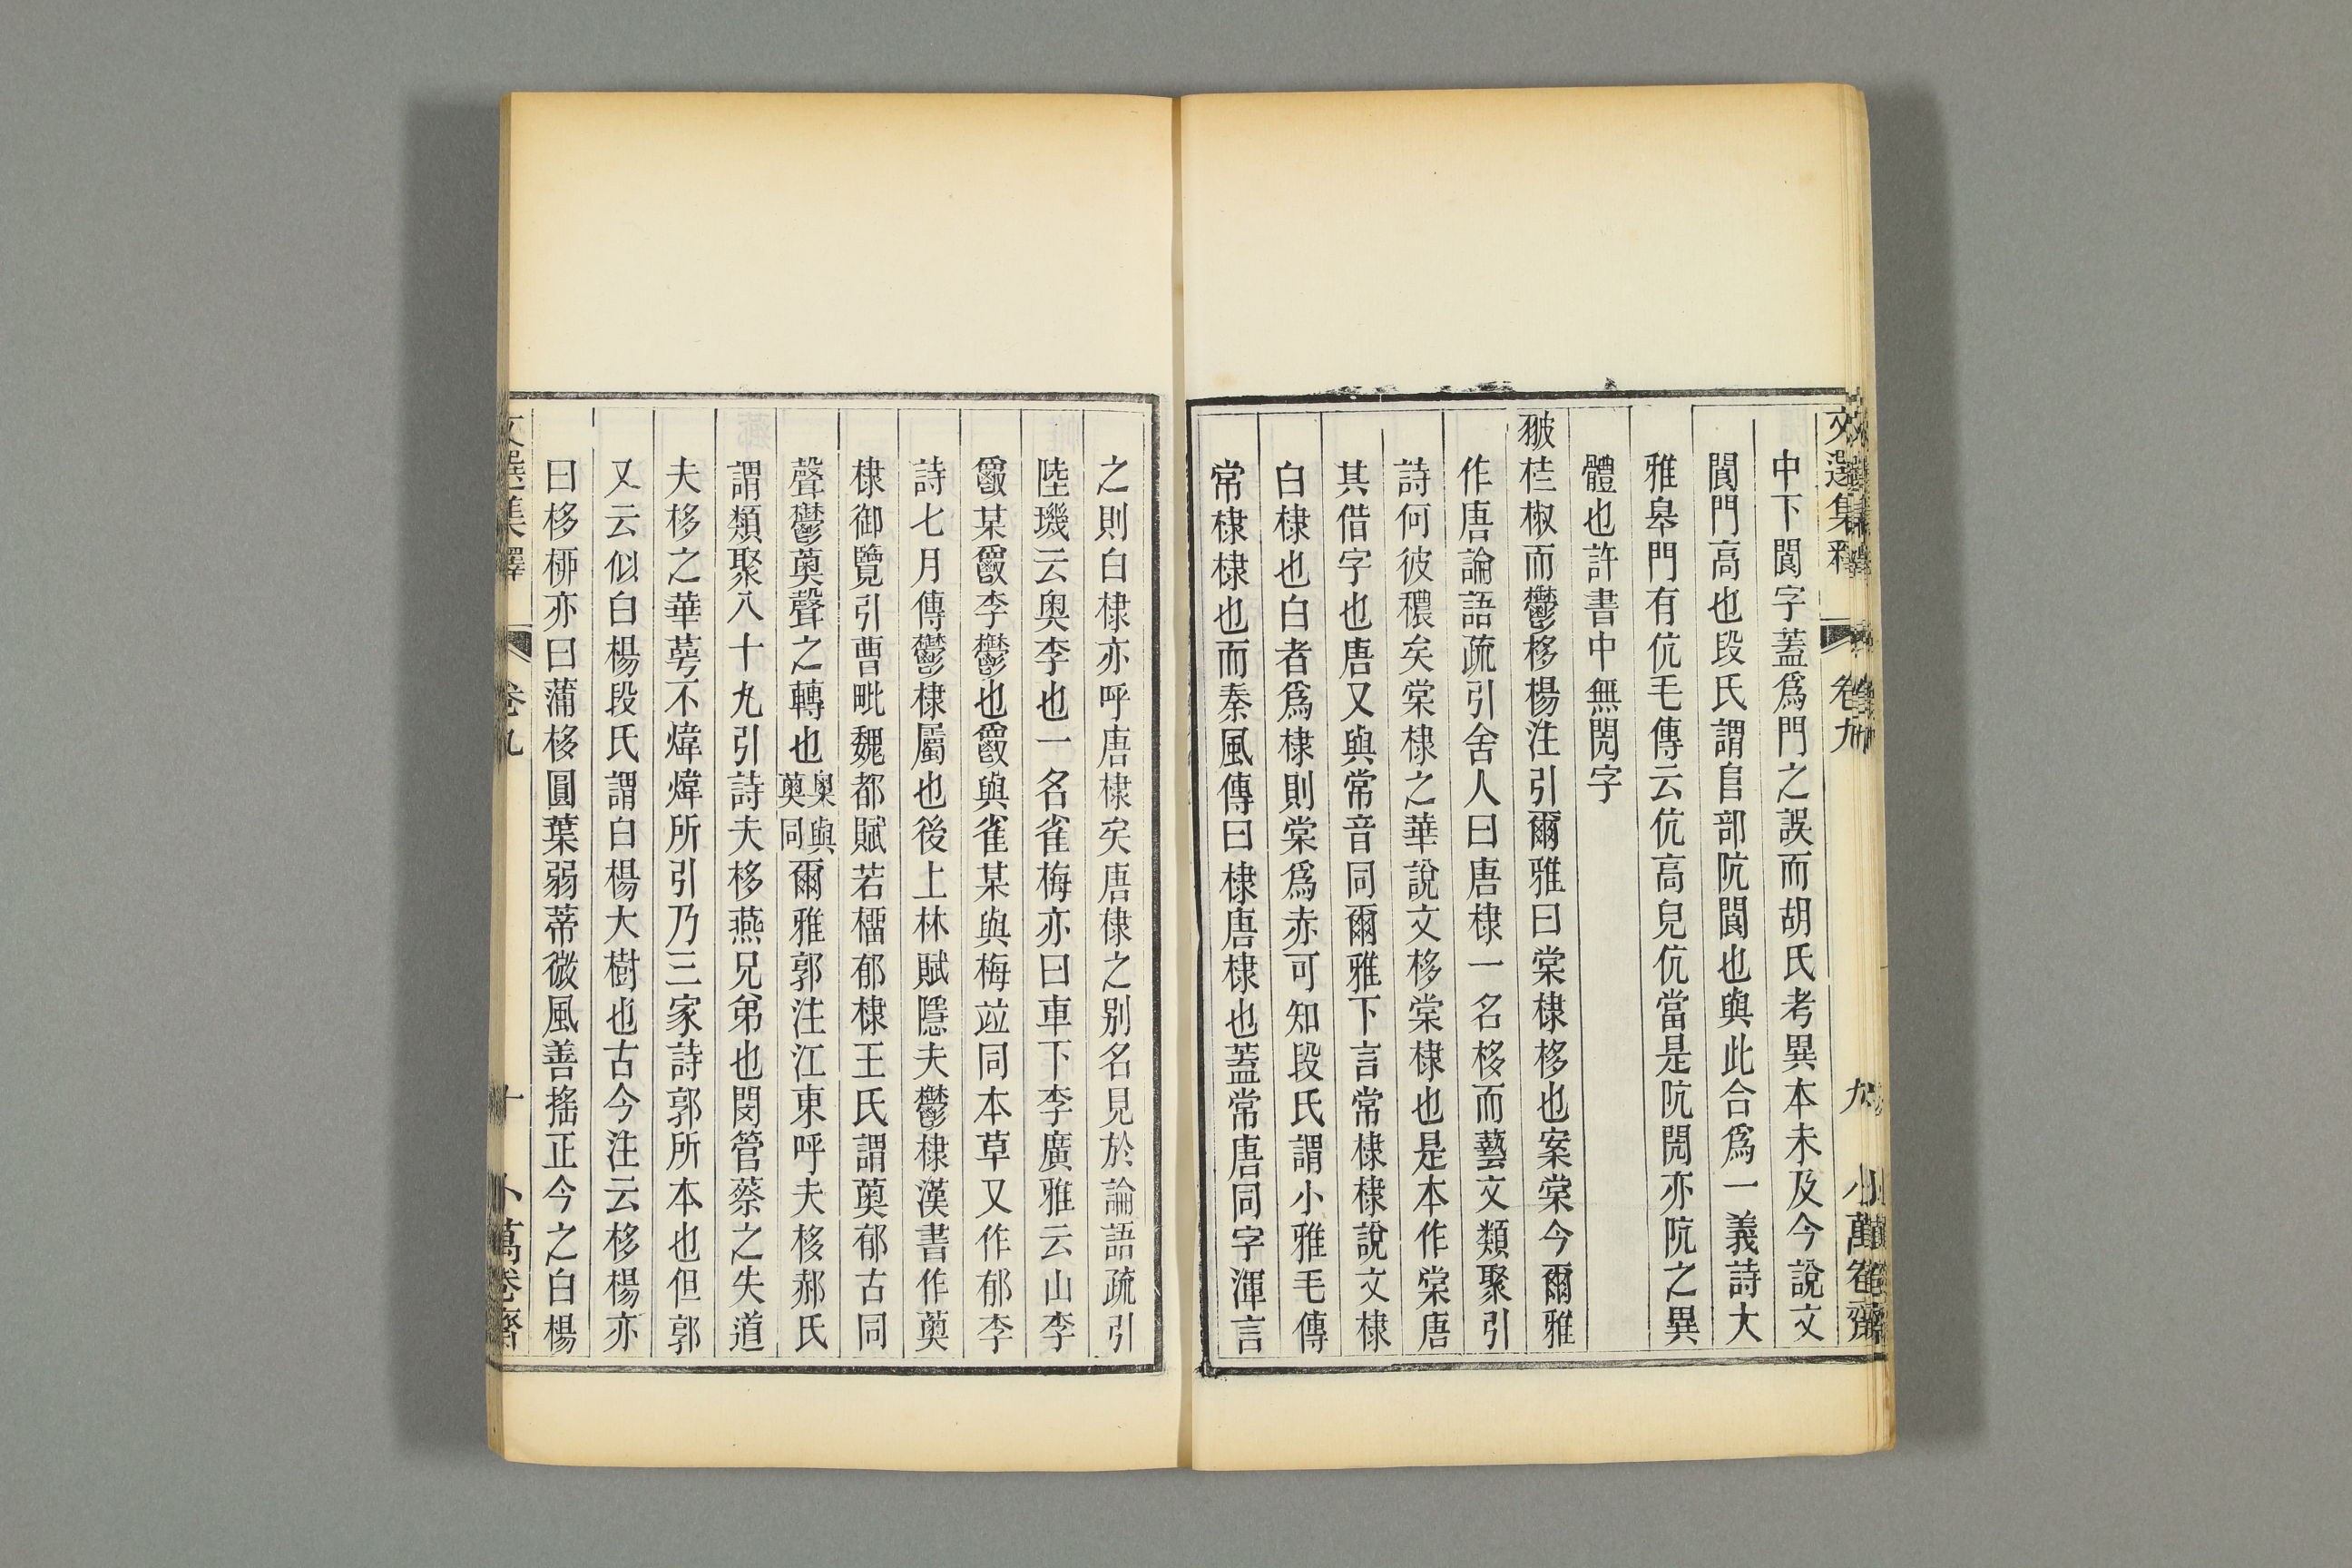 文選集釋 卷九 九 小萬卷齋
中下閬字蓋爲門之誤而胡氏考異本未及今說文
閬門高也段氏謂𨸏部阬閬也與此合爲一義詩大
雅皋門有伉毛傳云伉高皃伉當是阬閌亦阬之異
體也許書中無閌字
桂椒而鬱栘楊注引爾雅曰棠棣栘也案棠今爾雅
作唐論語疏引舍人曰唐棣一名栘而藝文類聚引
詩何彼穠矣棠棣之華說文栘棠棣也是本作棠唐
其借字也唐又與常音同爾雅下言常棣棣說文棣
白棣也白者爲棣則棠爲赤可知段氏謂小雅毛傳
常棣棣也而秦風傳曰棣唐棣也蓋常唐同字渾言
之則白棣亦呼唐棣矣唐棣之别名見於論語疏引
陸璣云奥李也一名雀梅亦曰車下李廣雅云山李
爵某爵李鬱也爵與雀某與梅竝同本草又作郁李
詩七月傳鬱棣屬也後上林賦隱夫鬱棣漢書作薁
棣御覽引曹毗魏都賦若橊郁棣王氏謂薁郁古同
聲鬱薁聲之轉也奥與薁同爾雅郭注江東呼夫栘郝氏
謂類聚八十九引詩夫栘燕兄弟也閔管蔡之失道
夫栘之華萼不煒煒所引乃三家詩郭所本也但郭
又云似白楊段氏謂白楊大樹也古今注云栘楊亦
曰栘柳亦曰蒲栘圓葉弱蒂微風善搖正今之白楊
文選集釋 卷九 十 小萬卷齋